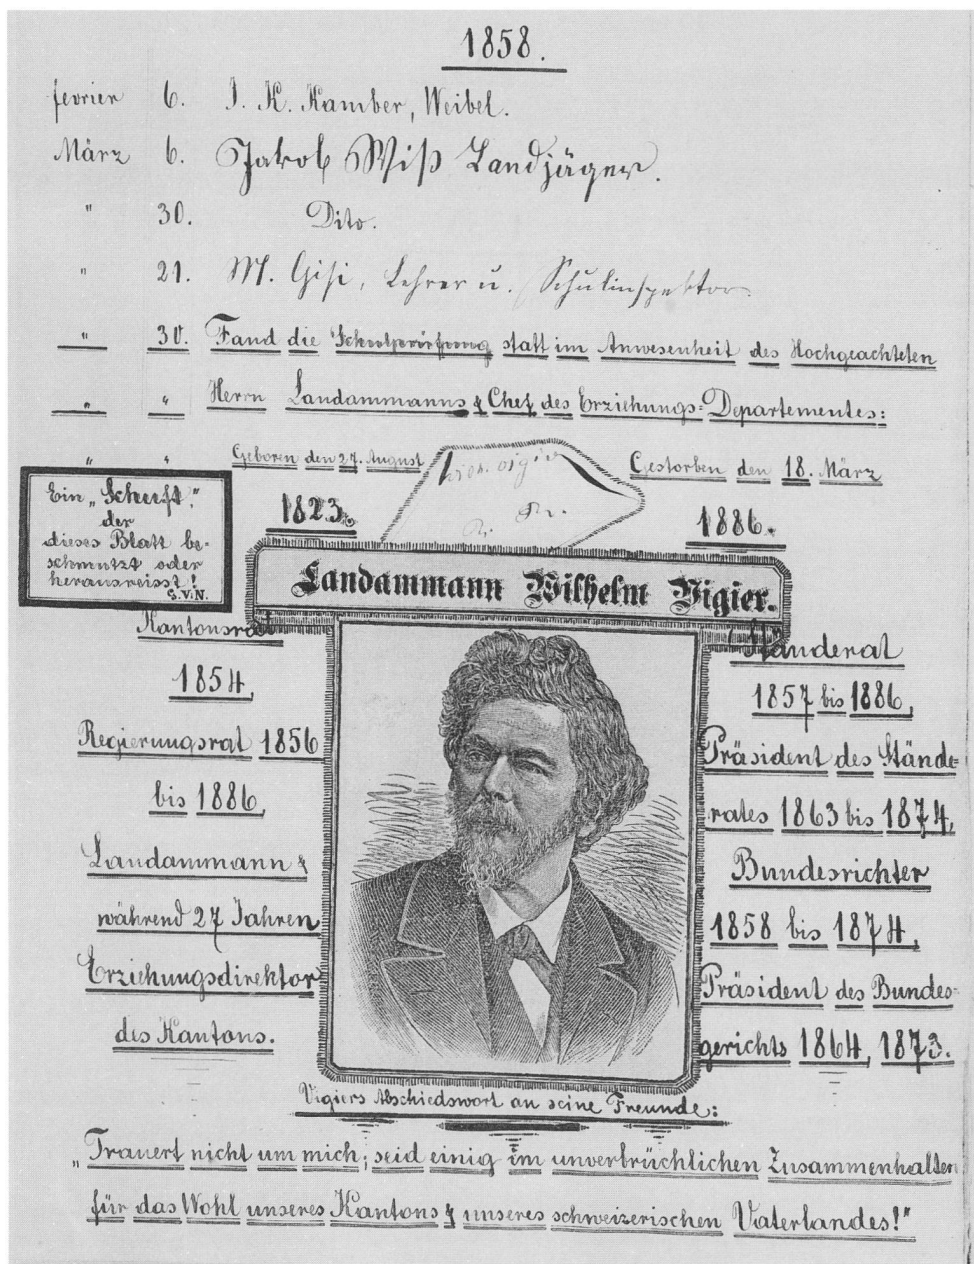 1858.
fevrier 6. J. K. Kamber, Weibel.
März 6. Jakob Wiß Landjäger.
" 30. Dito.
" 21. M. Gisi, Lehrer u. Schulinspektor.
" 30. Fand die Schulprüfung statt im Anwesenheit des Hochgeachteten
" " Herrn Landammanns & Chef des Erziehungs-Departementes:
" " Geboren den 27. August
1823.
Gestorben den 18. März
1886.
Ein „Schuft",
der
dieses Blatt be-
schmutzt oder
herausreisst!
G.V.N.
Landammann Wilhelm Vigier.
Kantonsrat
1854,
Regierungsrat 1856
bis 1886,
Landammann &
während 27 Jahren
Erziehungsdirektor
des Kantons.
Ständerat
1857 bis 1886,
Präsident des Stände-
rates 1863 bis 1874,
Bundesrichter
1858 bis 1874,
Präsident des Bundes-
gerichts 1864, 1873.
Vigiers Abschiedswort an seine Freunde:
„Trauert nicht um mich; seid einig im unverbrüchlichen Zusammenhalten
für das Wohl unseres Kantons & unseres schweizerischen Vaterlandes!"